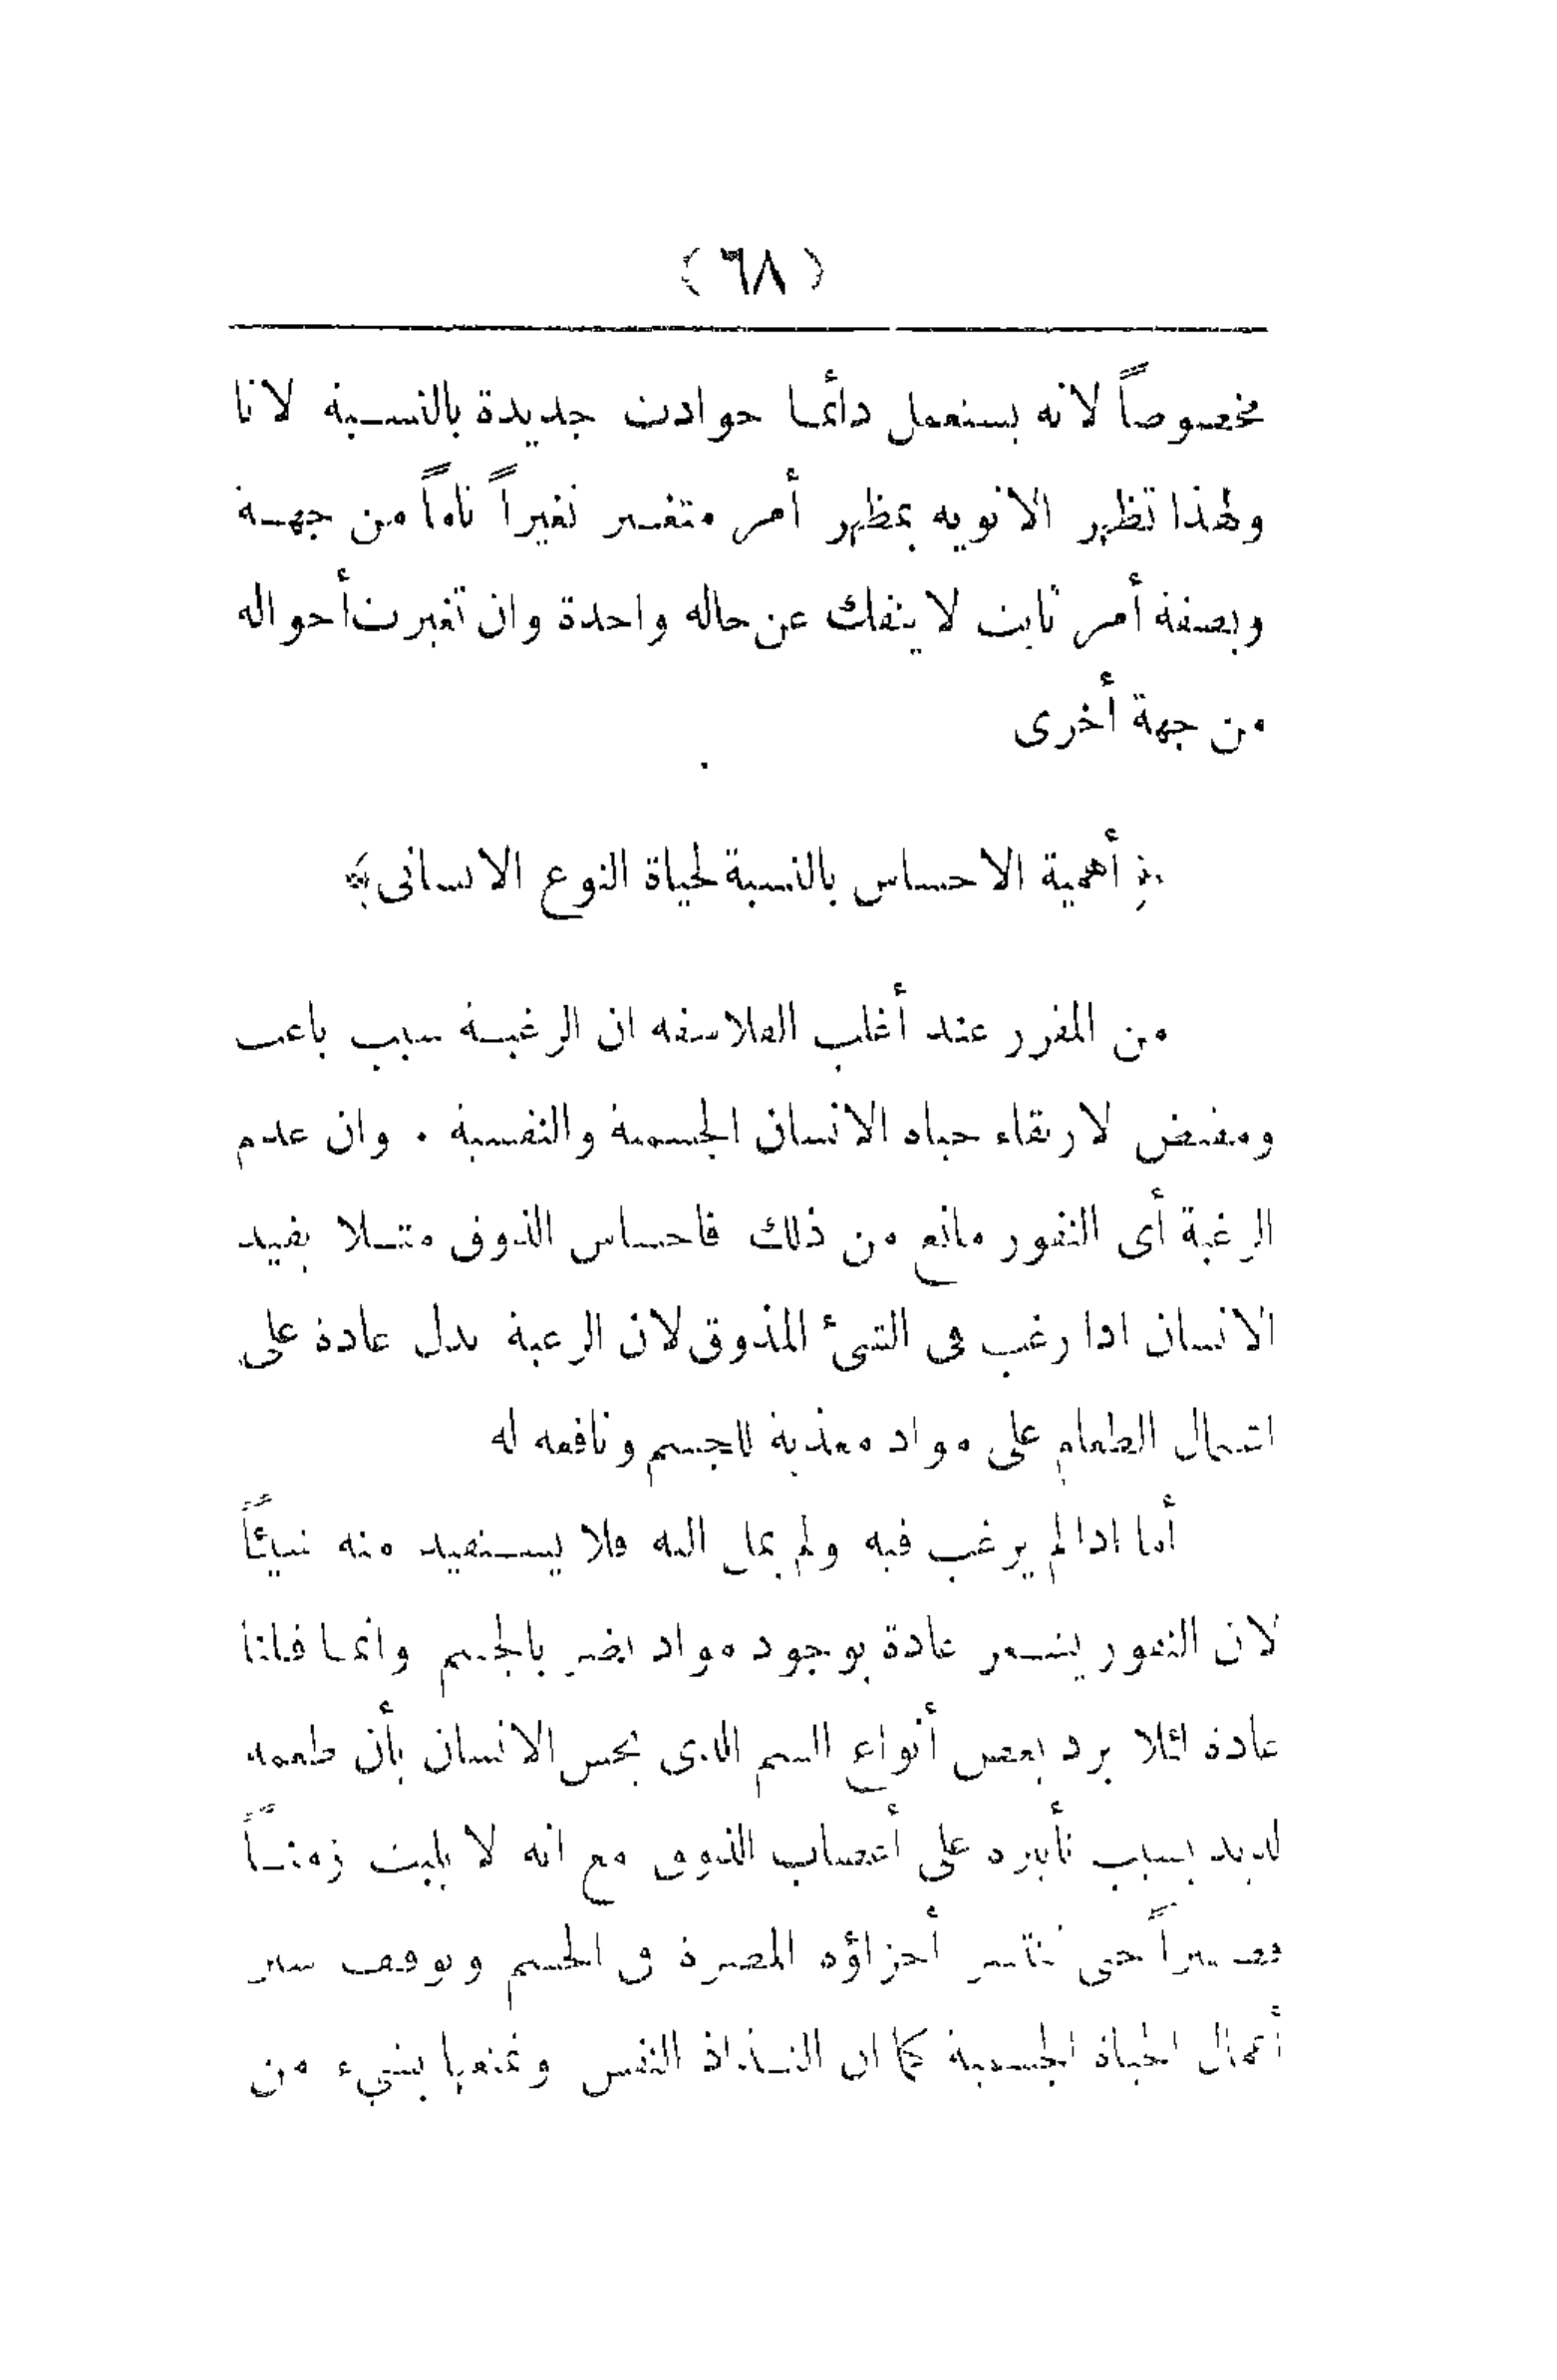 (٦٨)
مخصوصاً لانه يستعمل دائما حوادث جديدة بالنسبة لانا
ولهذا تظهر الانويه بمظهر أمر متغير تغيراً تاماً من جهة
وبصفة أمر ثابت لا ينفك عن حاله واحدة وان تغيرت أحواله
من جهة أخرى
﴿ أهمية الاحساس بالنسبة لحياة النوع الانسانى ﴾
من المقرر عند أغلب الفلاسفه ان الرغبة سبب باعث
ومقتض لارتقاء حياه الانسان الجسمية والنفسية . وان عدم
الرغبة أى النفور مانع من ذلك فاحساس الذوق مثلا يفيد
الانسان اذا رغب فى الشئ المذوق لان الرغبة تدل عادة على
اشتمال الطعام على مواد مغذية للجسم ونافعه له
أما اذا لم يرغب فيه ولم يمل اليه فلا يستفيد منه شيئاً
لان النفور يشعر عادة بوجود مواد تضر بالجسم وانما قلنا
عادة لئلا يرد بعض أنواع السم الذى يحس الانسان بأن طعمه
لذيذ بسبب تأثيره على أعصاب الذوق مع انه لا يلبث زمناً
قصيراً حتى تنتشر أجزاؤه المضرة فى الجسم وتوقف سير
أعمال الحياة الجسمية كما ان التذاذ النفس وتمتعها بشيء من